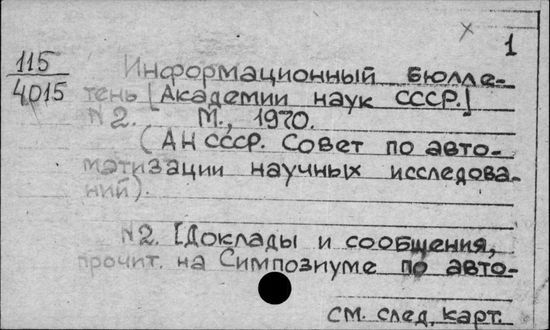 1
115
4015
Информационный бюлле-
тень [Академии наук СССР.]
№2. М., 1970.
(АН СССР. Совет по авто-
матизации научных исследова-
ний).
№2. [Доклады и сообщения,
прочит. на Симпозиуме по авто-
см. след. карт.